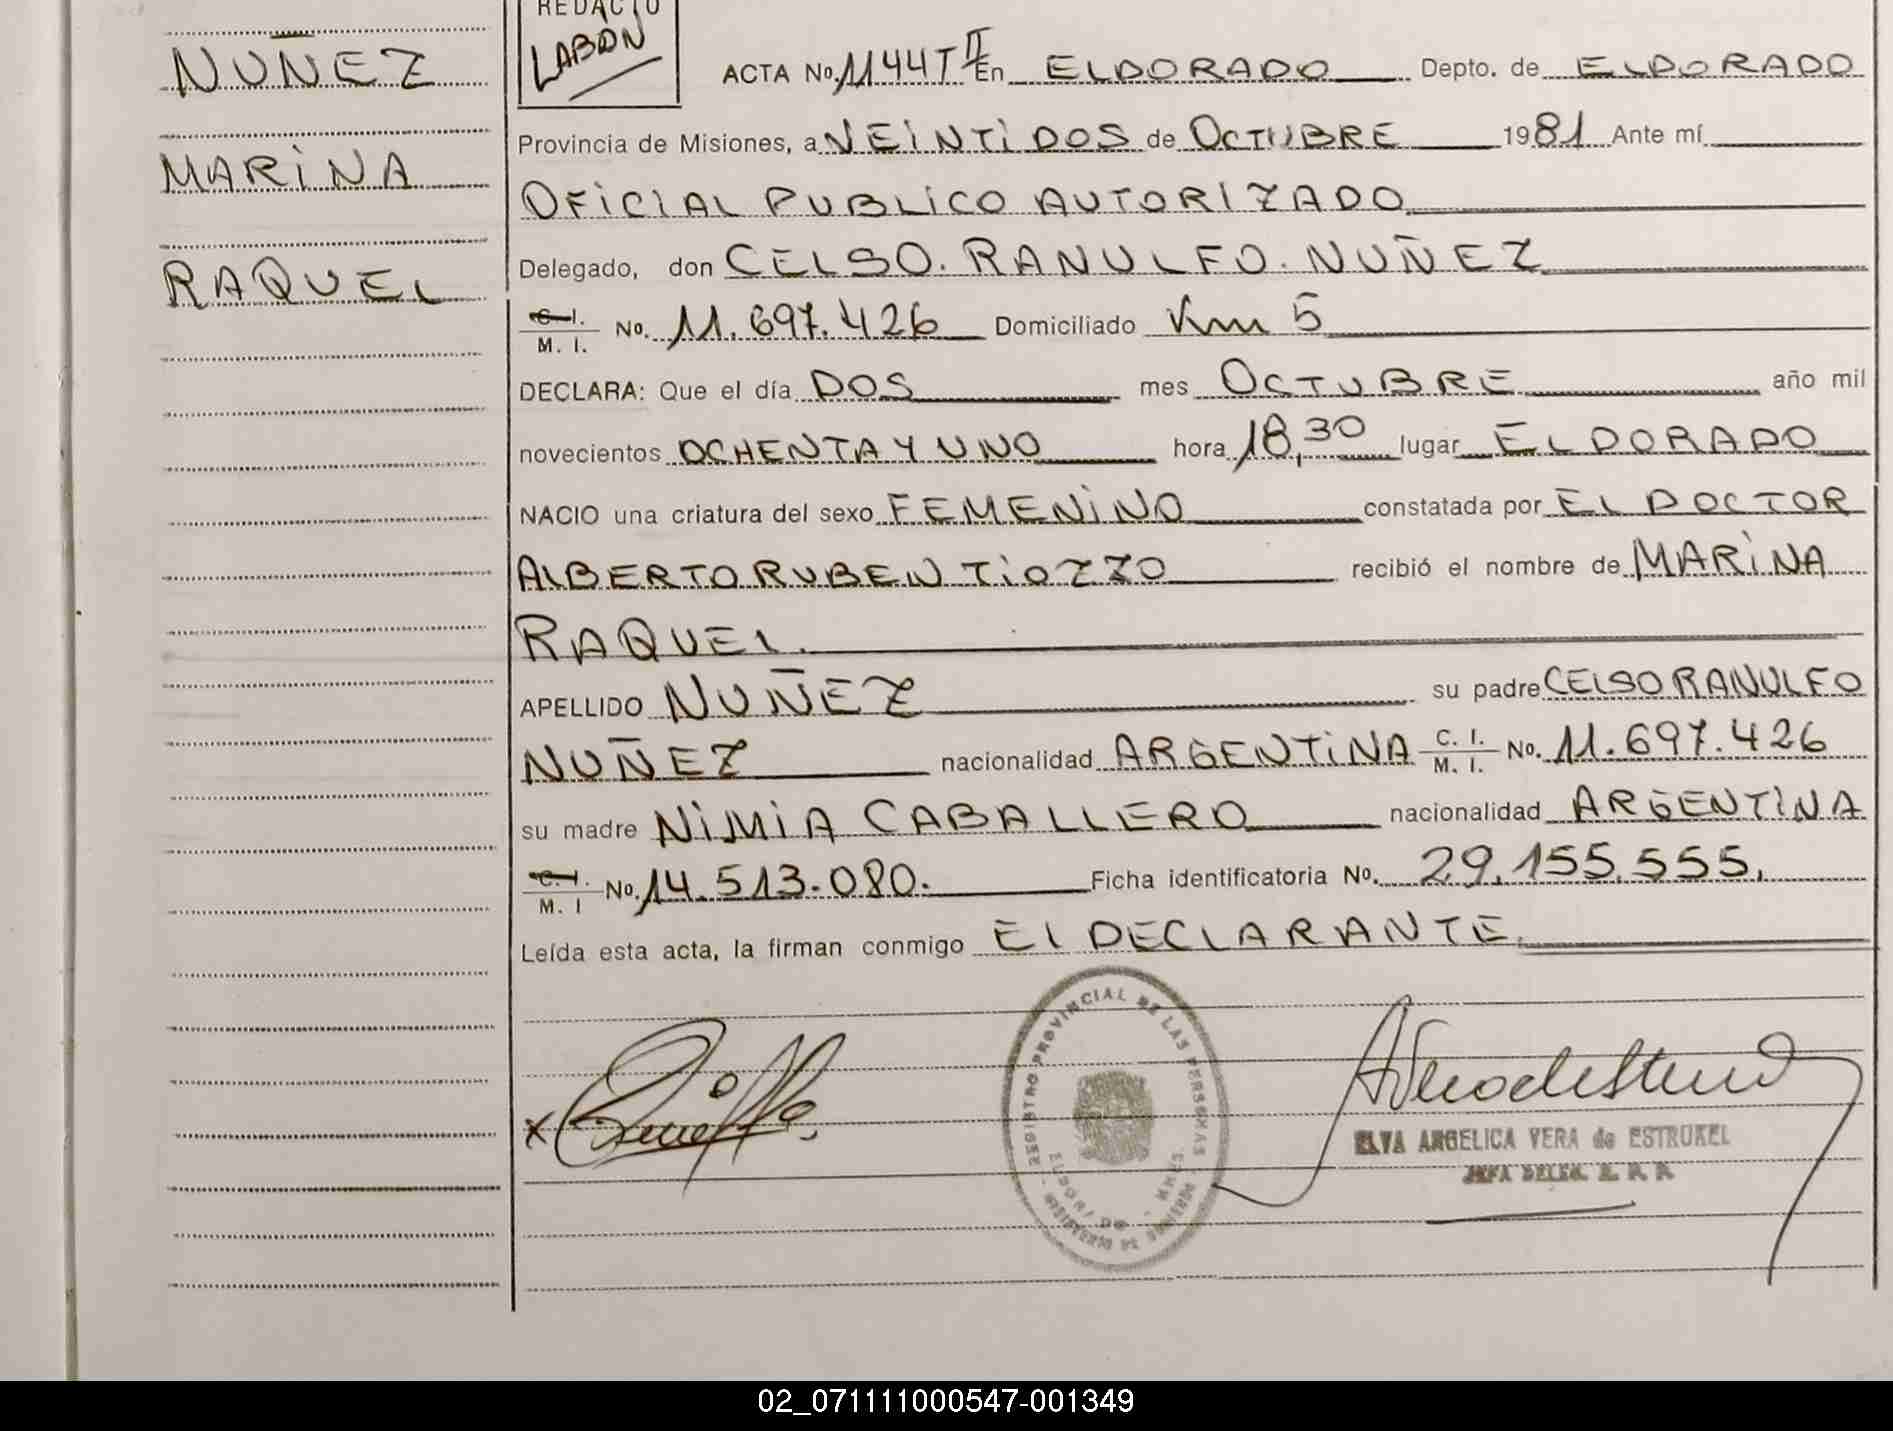 NUÑEZ
MARINA
RAQUEL
REDACTO
LABON
ACTA No. 1144 T II En ELDORADO Depto. de ELDORADO
Provincia de Misiones, a VEINTIDOS de OCTUBRE 1981 Ante mí
OFICIAL PUBLICO AUTORIZADO
Delegado, don CELSO. RANULFO. NUÑEZ
C. I. M. I. No. 11.697.426 Domiciliado Km 5
DECLARA: Que el día DOS mes OCTUBRE año mil
novecientos OCHENTA Y UNO hora 18,30 lugar ELDORADO
NACIO una criatura del sexo FEMENINO constatada por EL DOCTOR
ALBERTO RUBEN TIOZZO recibió el nombre de MARINA
RAQUEL.
APELLIDO NUÑEZ su padre CELSO RANULFO
NUÑEZ nacionalidad ARGENTINA C. I. M. I. No. 11.697.426
su madre NIMIA CABALLERO nacionalidad ARGENTINA
C. I. M. I No. 14.513.080. Ficha identificatoria No. 29.155.555.
Leída esta acta, la firman conmigo El DECLARANTE.
REGISTRO PROVINCIAL DE LAS PERSONAS
ELDORADO
ELVA ANGELICA VERA de ESTRUKEL
JEFA DELEG. R. P. P.
02_071111000547-001349